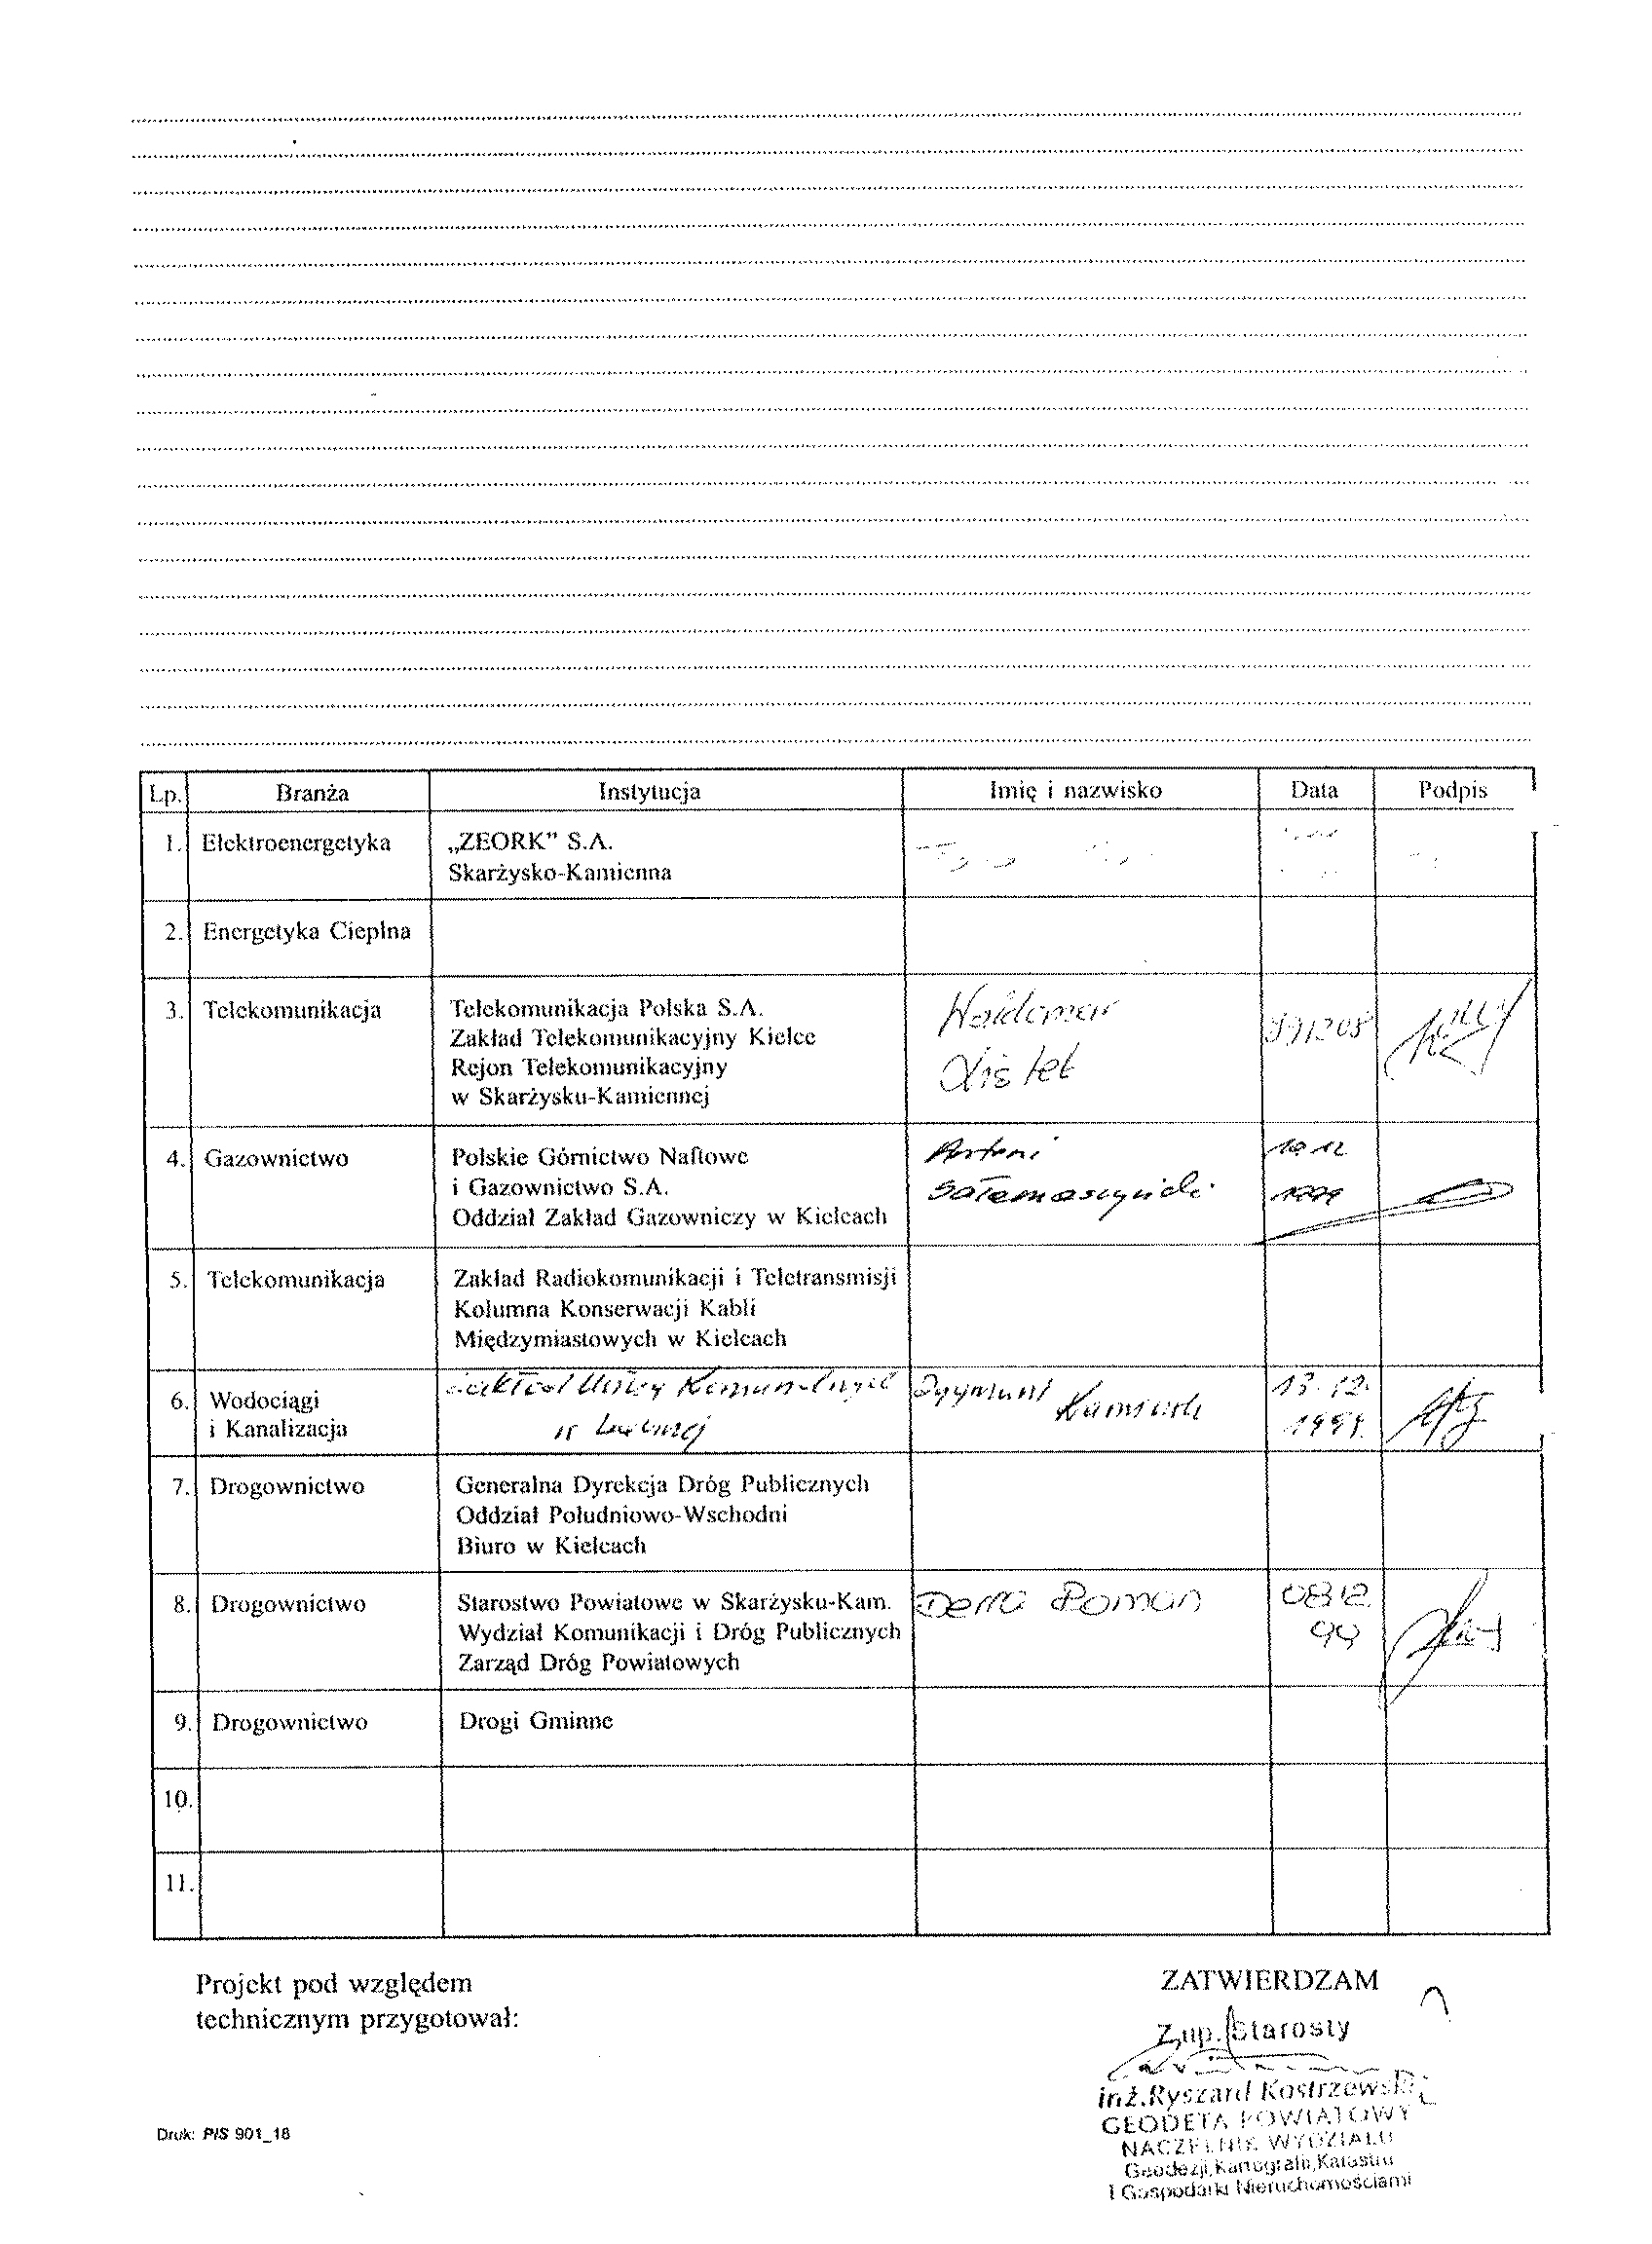 Lp. Branża Instytucja Imię i nazwisko Data Podpis
1. Elektroenergetyka „ZEORK” S.A.
Skarżysko-Kamienna
2. Energetyka Cieplna
3. Telekomunikacja Telekomunikacja Polska S.A. Waldemar 991208
Zakład Telekomunikacyjny Kielce
Rejon Telekomunikacyjny
w Skarżysku-Kamiennej
4. Gazownictwo Polskie Górnictwo Naftowe Antoni 10.12
i Gazownictwo S.A. 1999
Oddział Zakład Gazowniczy w Kielcach
5. Telekomunikacja Zakład Radiokomunikacji i Teletransmisji
Kolumna Konserwacji Kabli
Międzymiastowych w Kielcach
6. Wodociągi Zakład Usług Komunalnych Zygmunt 13.12.
i Kanalizacja w 1999.
7. Drogownictwo Generalna Dyrekcja Dróg Publicznych
Oddział Południowo-Wschodni
Biuro w Kielcach
8. Drogownictwo Starostwo Powiatowe w Skarżysku-Kam. Derra Roman 0812
Wydział Komunikacji i Dróg Publicznych 99
Zarząd Dróg Powiatowych
9. Drogownictwo Drogi Gminne
10.
11.
Projekt pod względem
technicznym przygotował:
ZATWIERDZAM
Z up. Starosty
inż. Ryszard Kostrzewski
GEODETA POWIATOWY
NACZELNIK WYDZIAŁU
Geodezji, Kartografii, Katastru
i Gospodarki Nieruchomościami
Druk: PIS 901_18